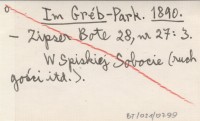 Im Gréb-Park. 1890.
– Zipser Bote 28, nr 27: 3.
W Spiskiej Sobocie (ruch
gości itd.).
BJ/024/0299